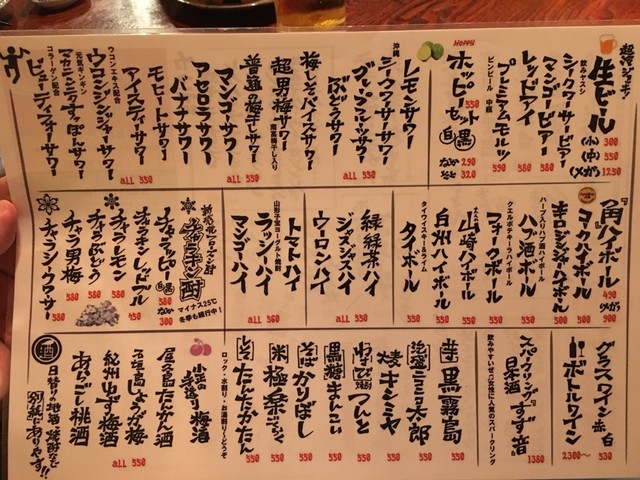 超冷ジョッキ!
生ビール
(小) 300
(中) 550
(メガ) 1250
飲みヤスシ
シークヮーサービアー 580
マンゴービアー 580
レッドアイ 580
プレミアムモルツ 590
ビンビール 中瓶
HOPPY
ホッピーセット 550
白 黒
なか 290
そと 320
レモンサワー
沖縄
シークヮーサーサワー
グレープフルーツサワー
ぶどうサワー
all 550
梅しそパイスサワー
超男梅サワー
南高梅干し入り
普通の梅干しサワー
マンゴーサワー
all 550
アセロラサワー
バナナサワー
モヒートサワー
アイスティーサワー
all 550
ウコンエキス配合
ウコンジンジャーサワー
元気ギンギン
マカニンニクすっぽんサワー
コラーゲン配合
ビューティフォーサワー
「角」ハイボール 490
メガ 900
コークハイボール 500
ジンジャーハイボール 500
ハーブ入りハブ酒ハイボール
ハブ酒ボール 550
クエルボテキーラハイボール
フォークボール 550
山崎ハイボール 550
白州ハイボール 550
タイウィスキー&ライム
タイボール 550
緑緑茶ハイ
ジャスジャスハイ
ウーロンハイ
all 550
トマトハイ
山形子宝ヨーグルト焼酎
ラッシーハイ
マンゴーハイ
all 560
新感覚氷点下酎
チャラキン酎
マイナス25℃
冬季も続行中!
チャラッピー 580
白 黒
なか 300
チャラキンシングル 450
チャラレモン 580
チャラぶどう 580
チャラ男梅 580
チャラシークワサー 580
グラスワイン 赤 白 530
ボトルワイン 2300〜
スパークリング日本酒『すず音』 1380
飲みやすいぜ♡女性に人気のスパークリング
[芋]黒霧島 550
[泡盛]ミミ太郎 550
[麦]キンミヤ 550
つんと 550
[黒糖]まんこい 550
[そば]かりほし 550
[米]極楽ごくらく 550
[しそ]たんたかたん 550
ロック・水割り・お湯割り〜どうぞ
小正の手造り梅酒
屋久島たんかん酒
石垣島しょうが梅
紀州ゆず梅酒
あらごし桃酒
all 550
酒
日替りの地酒 焼酎など
別紙にありやす!!